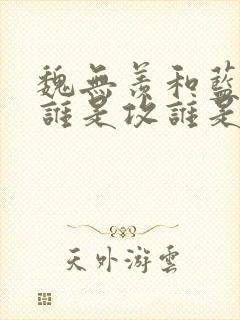 魏無羨和藍
誰是攻誰是
天外游雲